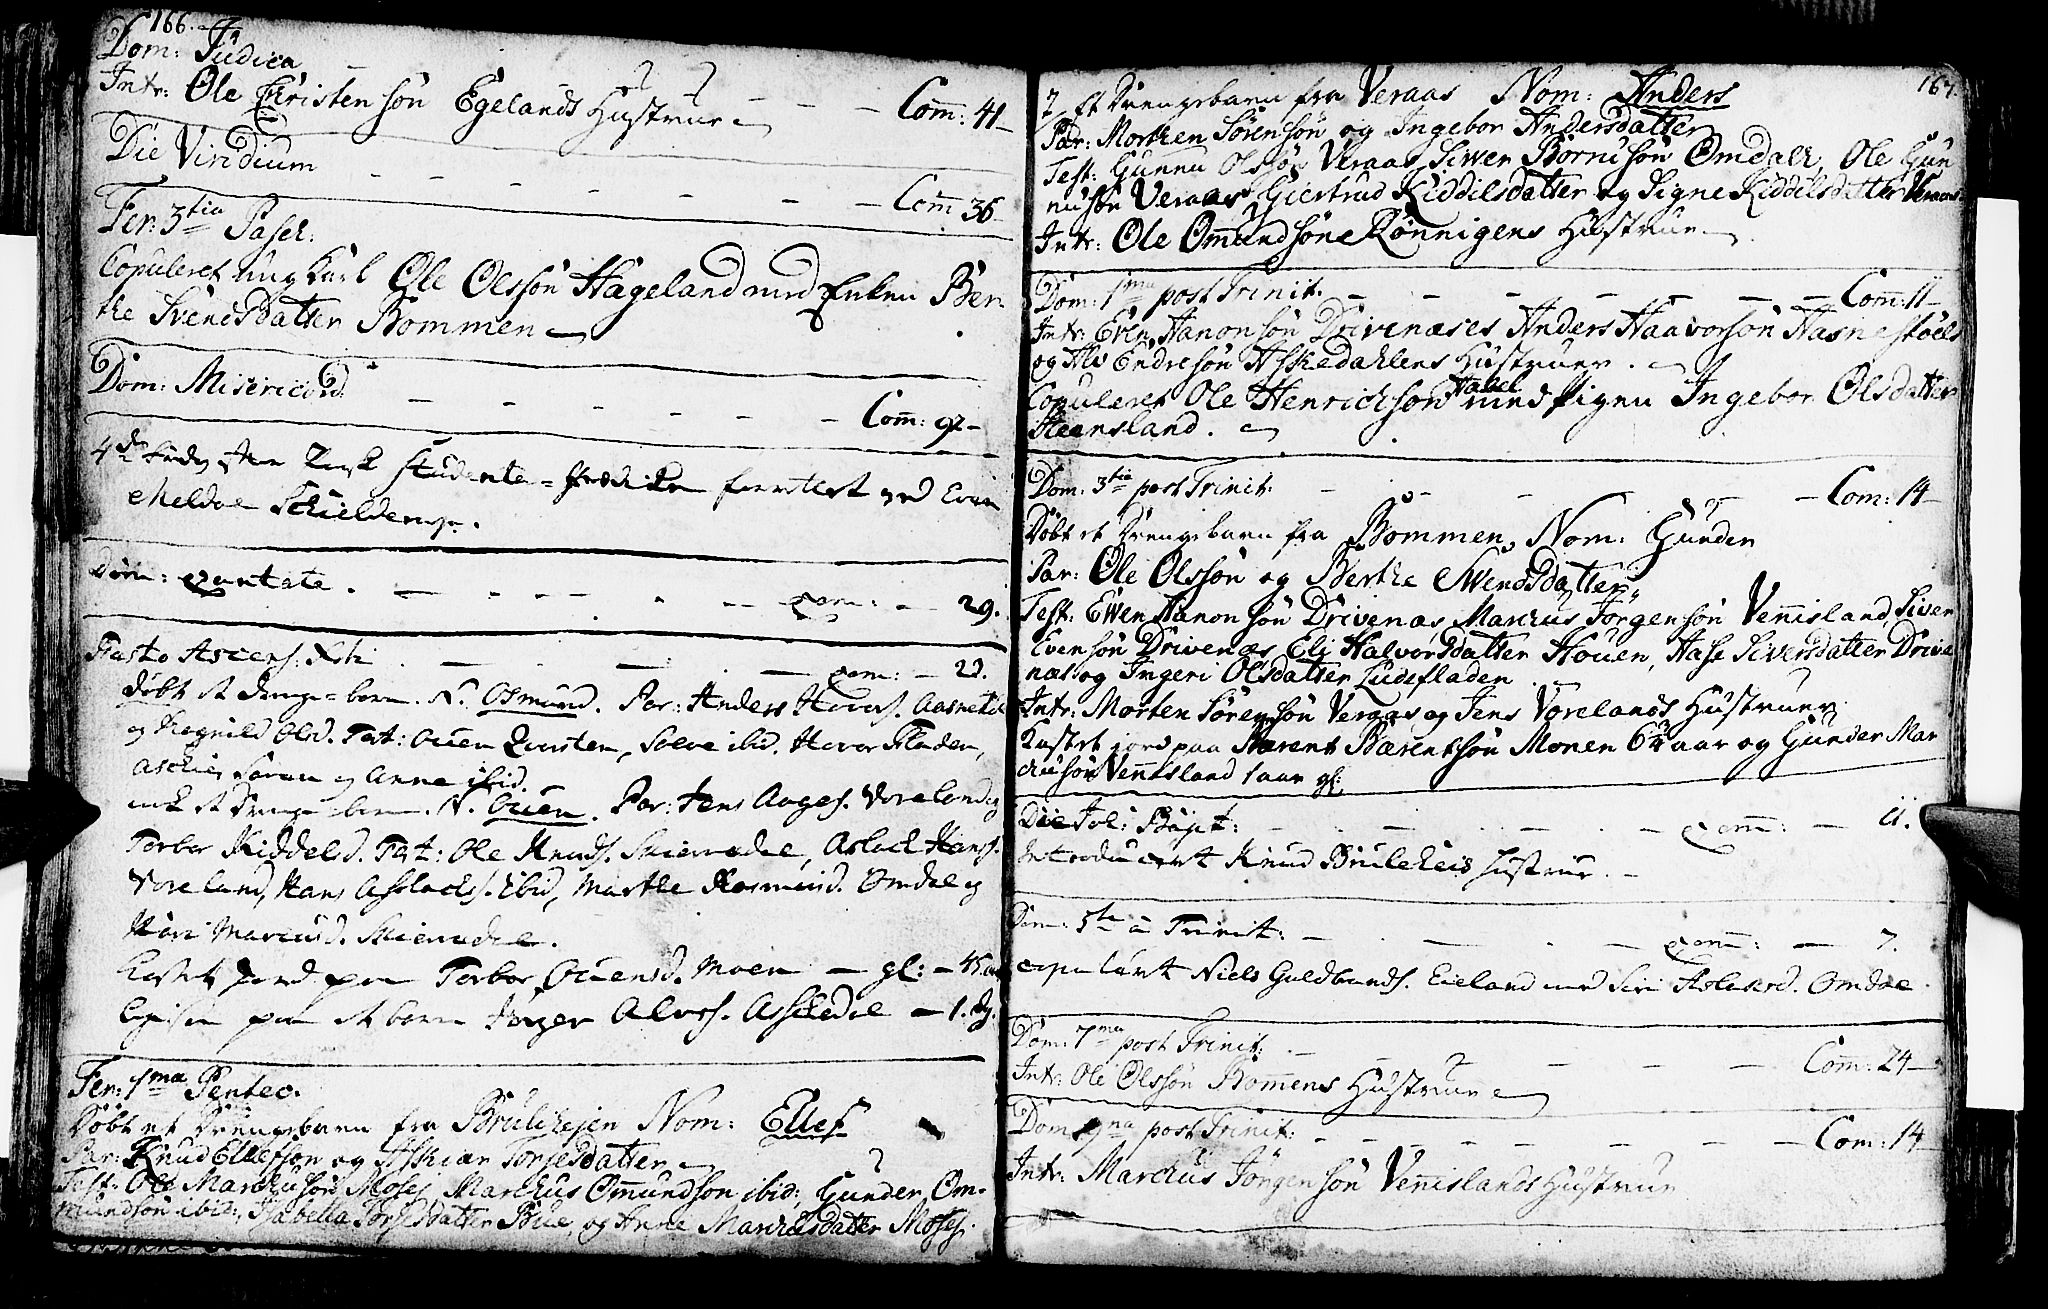 166.
Dom: Judica
Intr: Ole Christensøn Egelands Hustrue Com: 41
Die Viridium Com: 36
Fer: 3tia Pasch:
Copuleret ung Karl Ole Olssøn Hageland med Enken Ber
the Svendsdatter Bommen
Dom: Misericord. Com: 92
4de
Meldoe Schielderup.
Dom: Cantate. Com: 29.
Festo Ascens: Xsti Com: 21.
Døbt et drenge-barn. N. Osmund. Par: Anders Havors. Aasnestøl
og Ragnild Olsd. Test: Ouen Qvarsten, Salve ibid. Havor Fladen,
Aschier Søren og Anne ibid.
nok et Drenge-barn. N. Ouen. Par: Jens Aages. Voreland og
Torbor Kiddelsd. Test: Ole Knuds. Skieredal, Aslack Hans.
Voreland, Hans Asslachs. ibid, Marthe Rasmusd. Omdal og
Kari Marcusd. Skieredal.
Castet jord paa Torbor Ouensd. Moen gl: 45. aar
Ligesaa paa et barn Jørger Alvs. Asskedal 1. dg.
Fer: 1ma Pentec.
Døbt et Drengebarn fra Brulihejen Nom: Ellef
Par: Knud Ellefsøn og Askiær Torjesdatter
Test: Ole Marchusøn Mosej, Marchus Omundsøn ibid:, Gunder Om-
mundsøn ibid:, Isabella Torjesdatter Bue, og Anne Marchusdatter Mosej.
167.
2, Et Drengebarn fra Veraas Nom: Anders
Par: Morthen Sørensøn og Ingebor Andersdatter
Test: Gunnu Olssøn Veraas, Siwer Børnusøn Omdahl, Ole Gun
nusøn Veraas, Giertrud Kiddilsdatter og Signe Kiddilsdatter Veraas
Intr: Ole Omundsøn Rønnigens Hustrue
Dom: 1ma post Trinit. Com: 11
Intr: Even Aanonsøn Drivenæses Anders Haavorsøn Hasnestøels
og Alv Endresøn Askedahlens Hustruer.
Copuleret Ole Henrichsøn Hauel med Pigen Ingebor Olsdatter
Steensland.
Dom: 3tia post Trinit: Com: 14
Døbt et Drengebarn fra Bommen, Nom: Gunder
Par: Ole Olssøn og Berthe Swendsdatter
Test: Ewen Aanonsøn Drivenæs, Marchus Jørgensøn Vennisland, Siver
Evensøn Drivenæs, Eli Halvorsdatter Houen, Aase Siversdatter Drive
næs og Ingeri Olsdatter Ludefladen
Intr: Morten Sørensøn Veraas og Jens Vorelands Hustruer.
Kastet jord paa Bærent Bærentsøn Monen 62 aar og Gunder Mar
chusøn Vennisland 1 aar gl:
Die Joh: Bapt: Com: 11.
Introduceret Knud Bruleheis Hustrue.
Dom: 5te a Trinit: Com: 7.
copuleret Niels Guldbrands. Eieland med Siri Aslaksd. Omdal.
Dom: 7ma post Trinit: Com: 24
Intr: Ole Olssøn Bommens Hustrue
Dom: 9na post Trinit: Com: 14
Intr: Marchus Jørgensøn Vennislands Hustrue